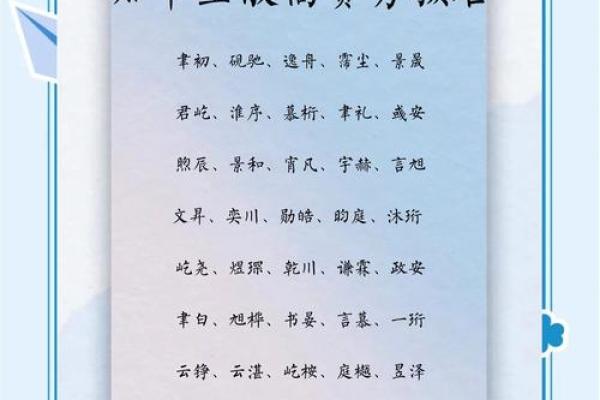 聿初、砚驰、逸舟、霈尘、景晟
君屹、淮序、慕桁、聿礼、彧安
煦辰、景和、宵凡、宇赫、言旭
文昇、奕川、勋皓、昀庭、沐珩
屹尧、煜琛、乾川、谦霖、政安
聿白、旭桦、书晏、言慕、一珩
云铮、云湛、屹桉、庭樾、昱泽